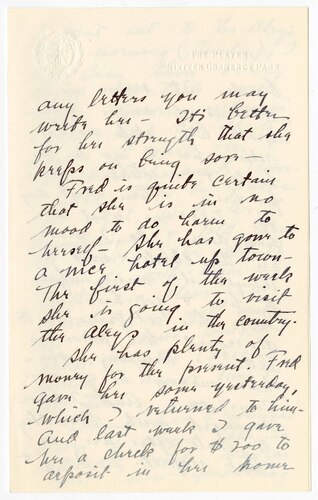 THE PLAYERS
SIXTEEN GRAMERCY PARK
any letters you may
write her - It's better
for her strength that she
keeps on being sore -
Fred is quite certain
that she is in no
mood to do harm to
herself - She has gone to
a nice hotel up town -
The first of the week
she is going to visit
the Aleys in the country.
She has plenty of
money for the present. Fred
gave her some yesterday,
which I returned to him -
And last week I gave
her a check for $200 to
deposit in her name